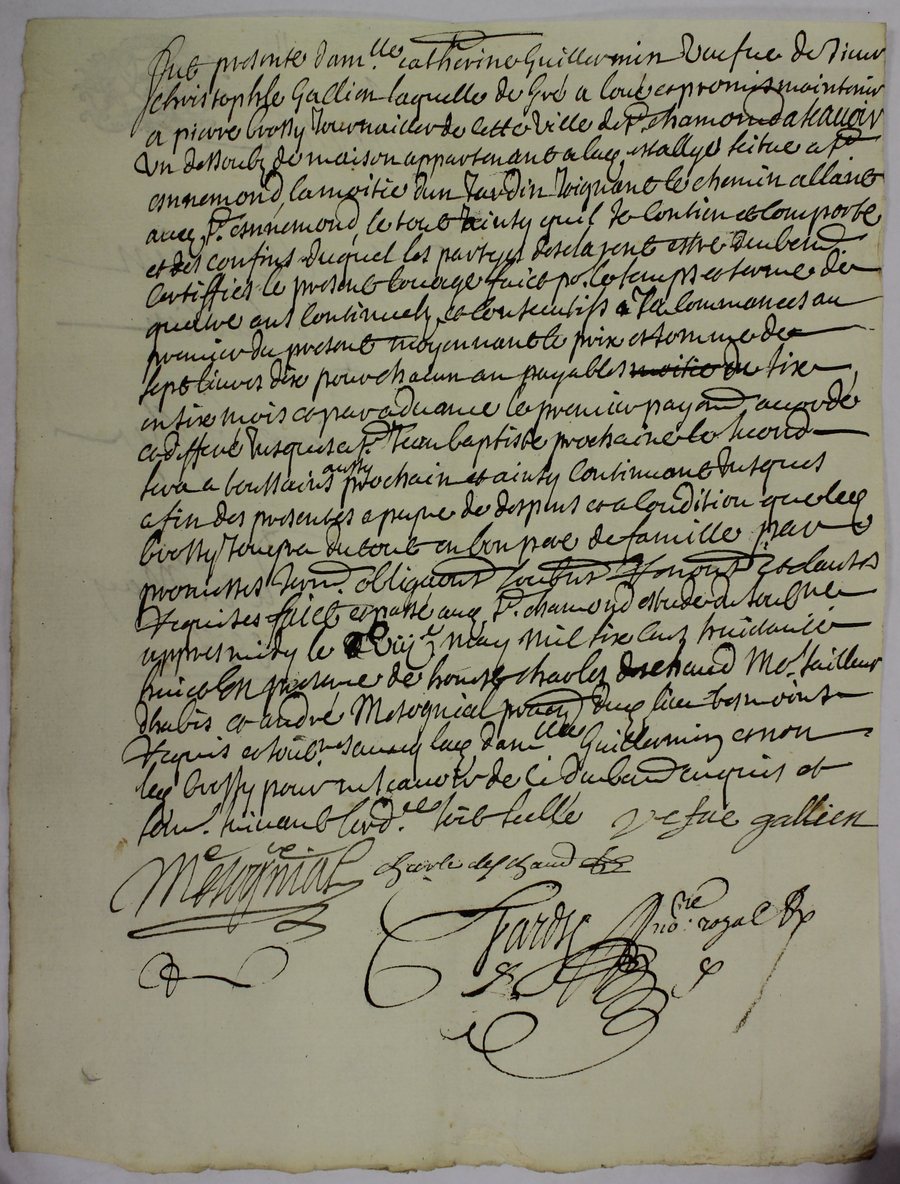 Fut presente dam.lle Catherine Guillermin vaefue de sieur
Christophle Gallien laquelle de gré a loué et promis maintenir
a pierre brossy Journallier de cette Ville de St chamond a scavoir
Un dessoubz de maison appartenant a scitue a St
ennemond, la moitié dun Jardin Joignant le chemin allant
aud St ennemond, le tout ainsy quil se contien et comporte
et des confins duquel les partyes desclarent estre
certiffiés le present louage faict po.r le temps et terme de
quatre ans continuelz et consecutifs a commancés au
premier du present moyennant le prix et somme de
sept livres dix pour chacun an payables moitie de six
en six mois et par advance le premier payem.t accordé
et differé Jusques a St Jean baptiste prochaine le second
sera a toussains aussy prochain et ainsy continuant Jusques
a fin des presentes a peyne de despens et a condition que led
brossy Jouyra du tout en bon pere de famille par
promesses serm.t obligaons soubzons renons et clauses
requises faict et passé aud St chamond estude du soubz.né
appres midy le may mil six cens huictante
huict En presence de honeste charles deschaud Me tailleur
dhabis et andré Mesognial dud lieu tesmoins
requis et soub.nes avecq lad dam.lle Guillermin et non
led brossy pour ne scavoir de ce enquis et
som.e suivant lord.ce soit scellé vefue gallien
Mesognial charle deschaud
no.re royal